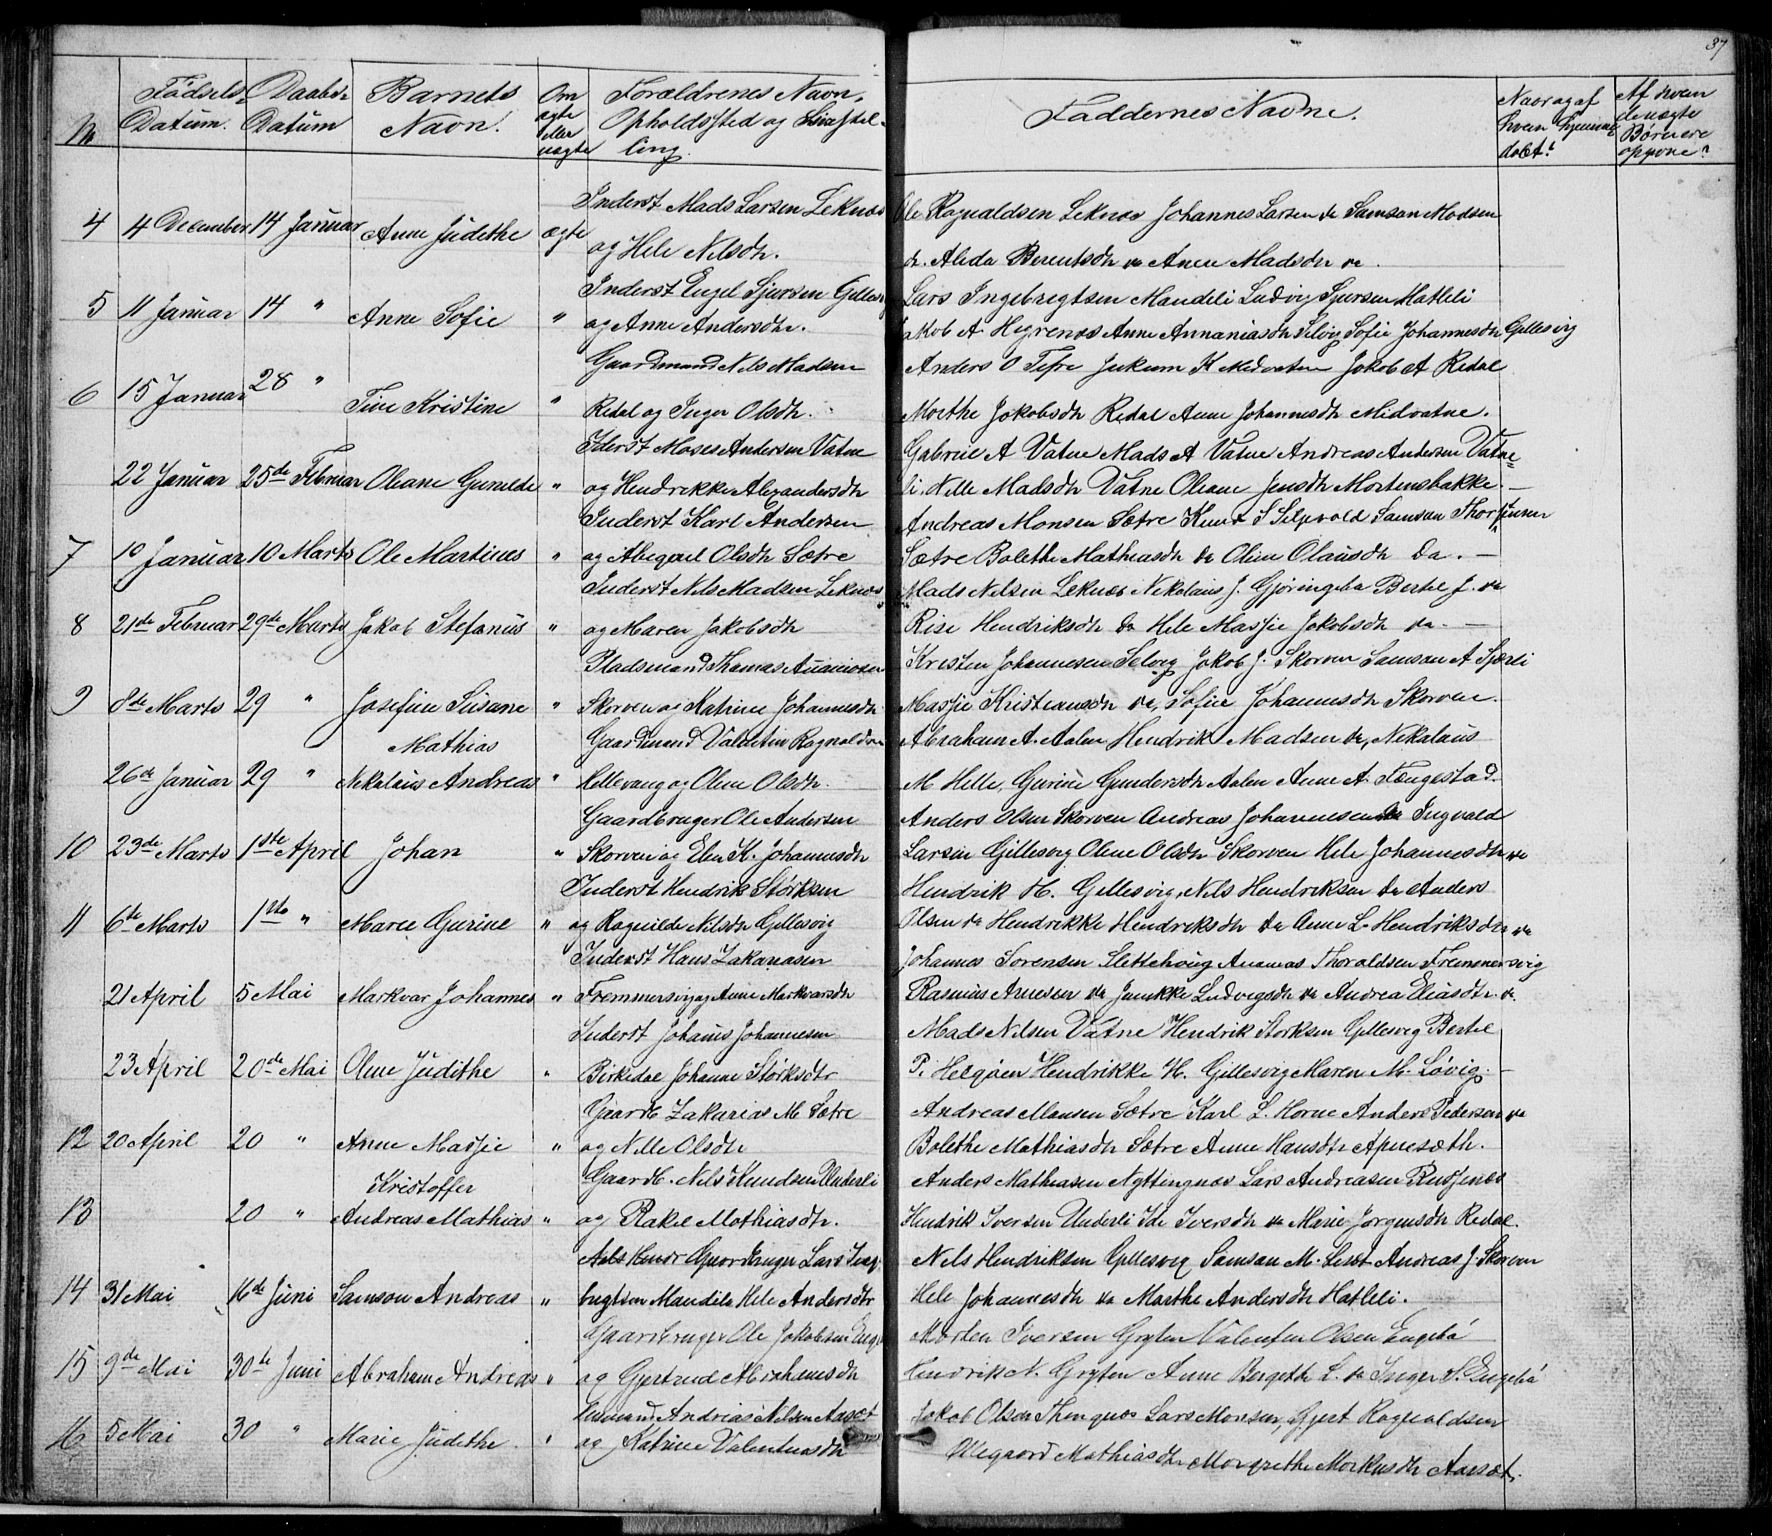 87
No
Fødsels-Datum.
Daabs-Datum
Barnets Navn.
Om ægte eller uægte
Forældrenes Navn, Opholdssted og Livsstilling.
Faddernes Navne.
Naar og af hvem hjemmedøbt?
Af hvem de uægte Børn ere opgivne?
4 4 December 14 Januar Anne Judithe ægte Inderst Mads Larsen Leknes
og Hele Nilsdtr.
Ole Ragnaldsen Leknes Johannes Larsen do Samson Madsen
do. Alida Berentsdtr do Anne Madsdtr do.
5 11 Januar 14 " Anne Sofie " Inderst Engel Sjursen Gillesvig
og Anne Andersdtr.
Lars Ingebrigtsen Mandeli Ludvig Sjursen Hatleli
Jakob A Hegrenes Anne Annaniasdtr Selvig Sofie Johannesdtr Gillesvig
6 15 Januar 28 " Tine Kristine " Gaardmand Nils Madsen
Redal og Inger Olsdtr.
Anders O Tefre Jukum K Midvatne Jokob A Redal
Marthe Jokobsdtr Redal Anne Johannesdtr Midvatne.
22 Januar 25de Februar Oleane Gurulde " Iderst Moses Andersen Vatne
og Hendrekke Alexandersdtr
Gabriel A Vatne Mads A Vatne Andreas Andersen Vatne=
li. Nille Madsdtr Vatne Oleane Jensdtr Mortensbakke. —
7 10 Januar 10 Marts Ole Martinus " Inderst Karl Andersen
og Abigael Olsdtr Sætre
Andreas Monsen Sætre Knut S Selsvold Samson Thorsensen
Sætre Bolethe Mathiasdtr do Oline Olausdtr Do. —
8 21de Februar 29de Marts Jakob Stefanus " Inderst Nils Madsen Leknes
og Maren Jakobsdtr
Mads Nilsen Leknes Nikolaus J. Gjøringbø Bertel J. do
Rise Hendriksdtr do Hele Masjie Jokobsdtr do. —
9 8de Marts 29 " Josefine Susane " Pladsmand Thomas Ananiasen
Skorven og Katrine Johannesdtr
Kristen Johannesen Selvig Jokob J. Skorven Samson A Sjærli
Masjie Kristiansdtr do, Sofie Johannesdtr Skorven.
26de Januar 29 " Mathias
Nikolaus Andreas " Gaardmand Valentin Ragnaldsen
Hellevang og Oline Olsdtr.
Abraham A. Aalen Hendrik Madsen do, Nikolaus
M Helle, Gurine Gundersdtr Aalen Anne A. Fængestad.
10 23de Marts 1ste April Johan " Gaardbruger Ole Andersen
Skorven og Elen K. Johannesdtr
Anders Olsen Skorven Andreas Johannesen do Ingvald
Larsen Gillesvig Oline Olsdtr Skorven Hele Johannesdtr do
11 6te Marts 1ste " Maree Gurine " Inderst Hendrik Størksen
og Ragnilde Nilsdtr Gillesvig
Hendrik H. Gillesvig, Nils Hendriksen do Anders
Olsen do Hendrikke Hendriksdtr do Anne L. Hendriksdtr do
21 April 5 Mai Markvar Johannes " Inderst Hans Zakariasen
Fremmersvig og Anne Markvarsdtr
Johannes Sorensen Slettehaug Ananias Thoraldsen Fremmersvig
Rasmus Arnesen do Jenikke Ludvigsdtr do Andrea Eliasdtr. do
23 April 20de Mai Oline Judithe " Inderst Johanis Johannesen
Birkedal Johanne Størksdtr
Mads Nilsen Vatne Hendrik Storksen Gillesvig Bertel
P. Helgøen Hendrikke H. Gillesvig Maren M. Løvig. —
12 20 April 20 " Anne Masjie " Gaardb Zakarias M Sætre
og Nille Olsdtr
Andreas Monsen Sætre Karl L. Horne Anders Pedersen do
Bolethe Mathiasdtr Sætre Anne Hansdtr Apnesæth.
13 20 " Kristoffer
Andreas Mathias " Gaardb. Nils Knudsen Underli
og Rakel Mothiasdtr.
Anders Mathiasen Nyttingnes Lars Andreasen Rusjenes
Hendrik Iversen Underli Ide Iversdtr do Marie Jørgensdtr Redal.
14 31 Mai 16de Juni Samson Andreas " Gaardbruger Lars Inge-
brigtsen Mandile Hele Andersdtr
Nils Hendriksen Gillesvig Samson M. Leset Andreas J. Skorven
Hele Johannesdtr do Marthe Andersdtr Hatleli.
15 9de Mai 30te Juni Abraham Andreas " Gaardbruger Ole Jakobsen Engebø
og Gjertrud Abrahamsdtr
Morten Iversen Gryten Valentin Olsen Engebø
Hendrik N. Gryten Anne Bergethe L. do Inger S. Engebø
16 5 Mai 30 " Marie Judithe. " Husmand Andreas Nilsen Aaset
og Katrine Valentinsdtr
Jakob Olsen Thengnes Lars Monsen, Gjert Ragnaldsen
Mathiasdtr Margrethe Markusdtr Aarset.